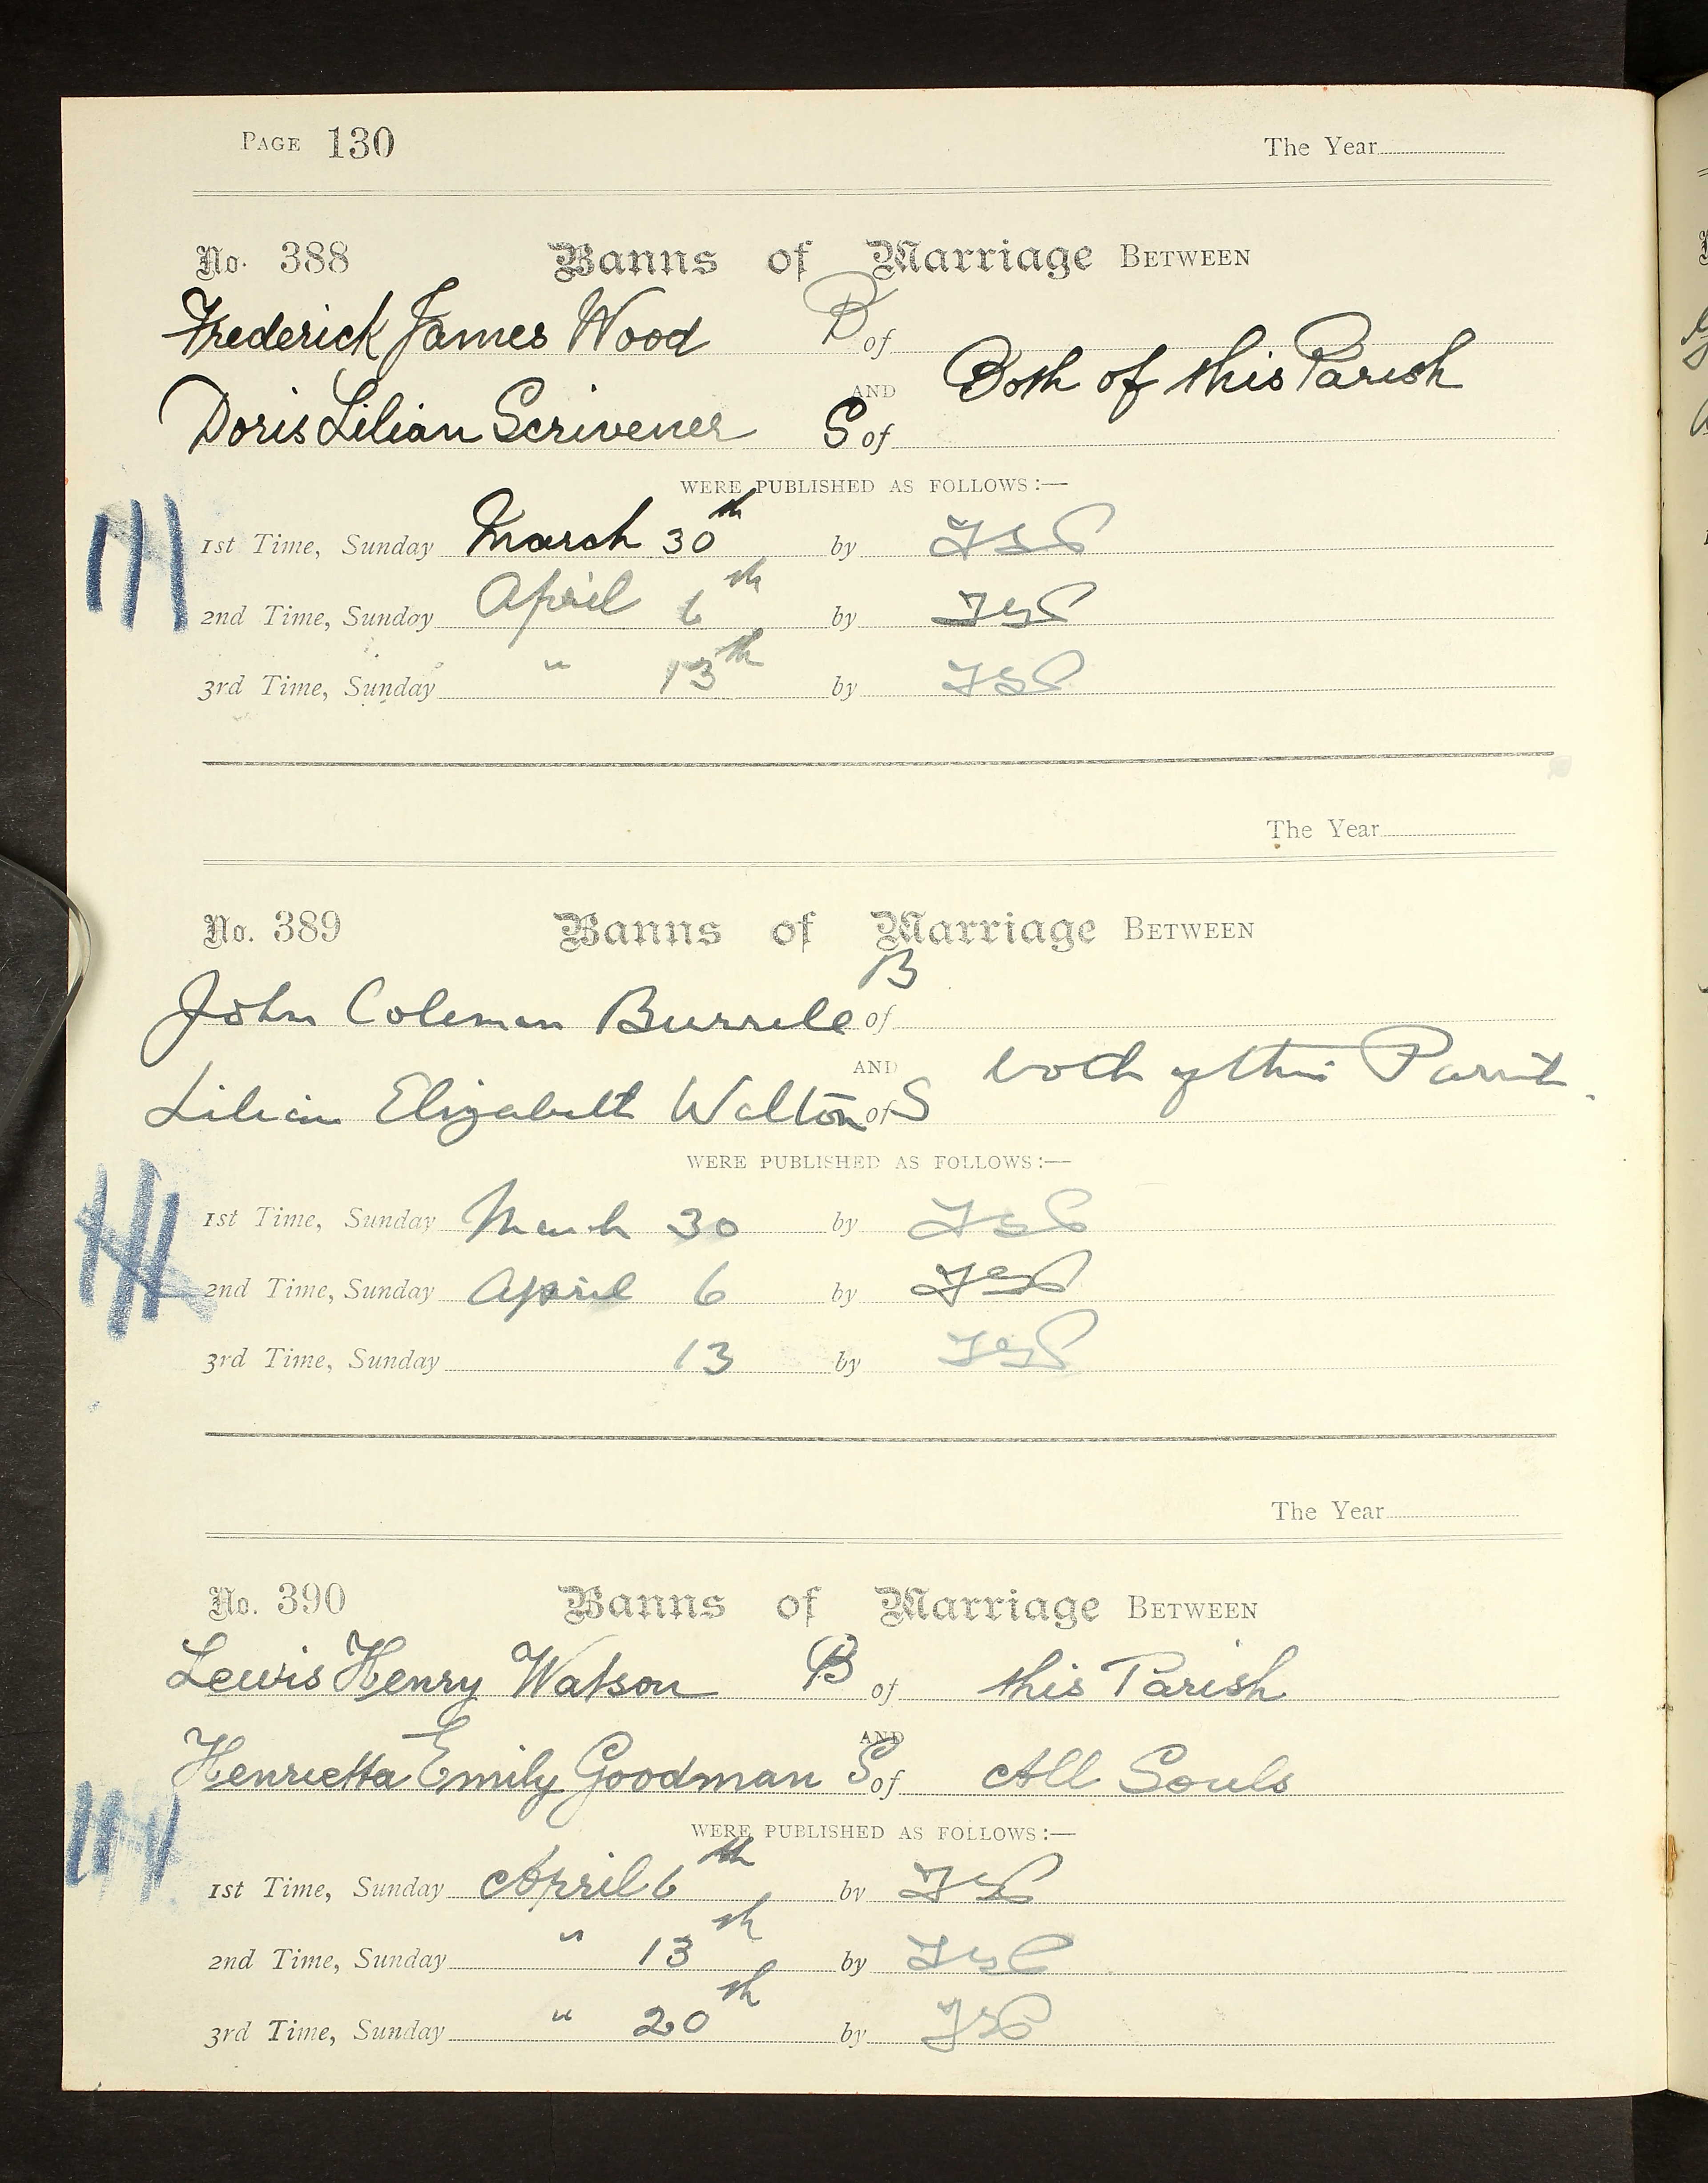 PAGE 130 The Year
No. 388 Banns of Marriage BETWEEN
Frederick James Wood B of
AND Both of this Parish
Doris Lilian Scrivener S of
WERE PUBLISHED AS FOLLOWS:—
1st Time, Sunday March 30th by
2nd Time, Sunday April 6th by
3rd Time, Sunday " 13th by
The Year
No. 389 Banns of Marriage BETWEEN
B
John Coleman Burrell of
AND both of this Parish
Lilian Elizabeth Walton of S
WERE PUBLISHED AS FOLLOWS:—
1st Time, Sunday March 30 by
2nd Time, Sunday April 6 by
3rd Time, Sunday 13 by
The Year
No. 390 Banns of Marriage BETWEEN
Lewis Henry Watson B of this Parish
AND
Henrietta Emily Goodman S of All Souls
WERE PUBLISHED AS FOLLOWS:—
1st Time, Sunday April 6th by
2nd Time, Sunday " 13th by
3rd Time, Sunday " 20th by